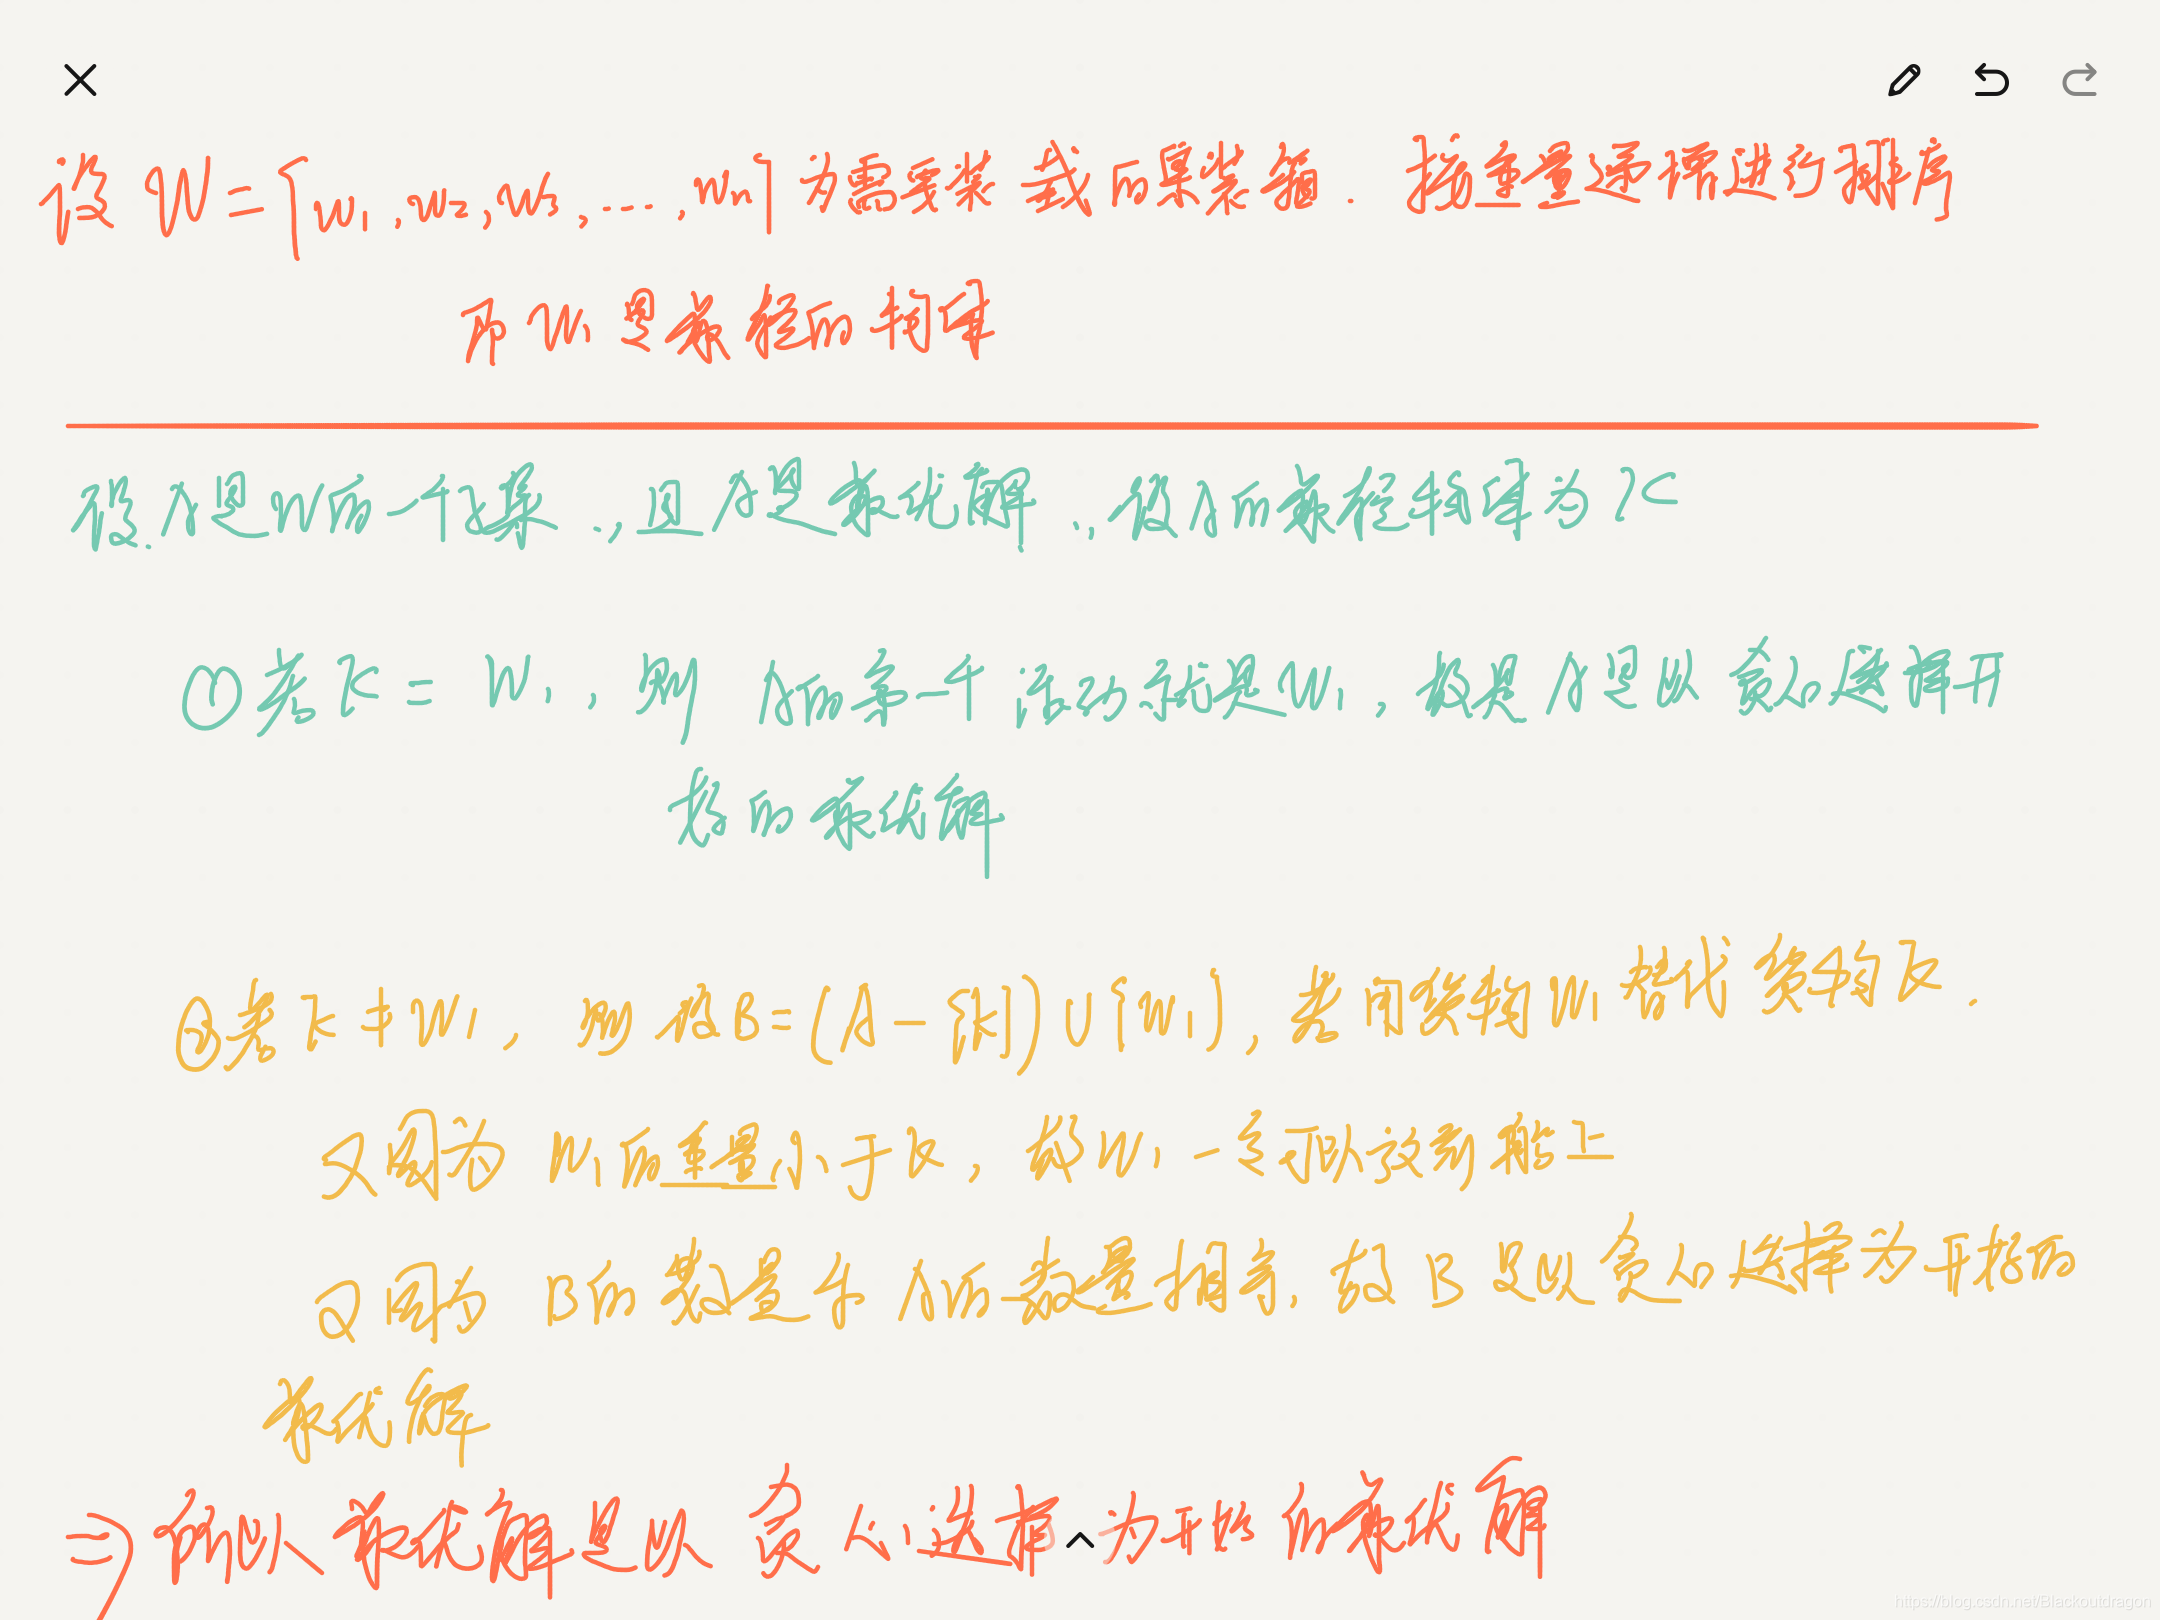 设 W = [w₁, w₂, w₃, ...., wn] 为需要装载的集装箱. 按重量递增进行排序
而 W₁ 是最轻的物体
设A是W的一个子集., 且A是最优解., 设A的最轻物体为K
①若 K = W₁, 则 A的第一个活动就是W₁, 故是A是以贪心选择开
始的最优解
②若 K ≠ W₁, 则设B=(A-{k})∪{W₁}, 用货物W₁替代货物K.
又因为 W₁的重量小于K, 故W₁一定可以放到船上
又因为 B的数量与A的数量相等, 故B是以贪心选择为开始的
最优解
⇒ 所以最优解是以 贪心选择为开始的最优解
https://blog.csdn.net/Blackoutdragon